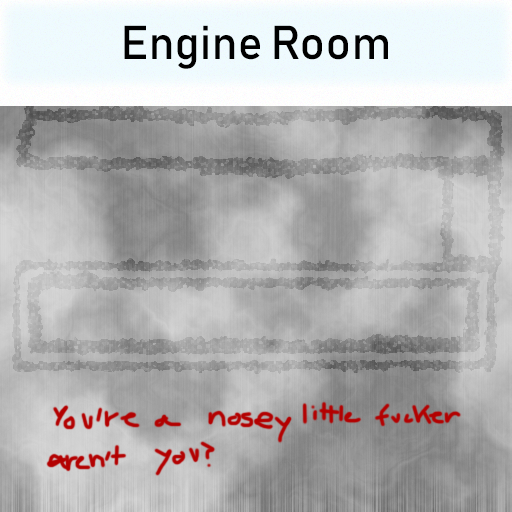 Engine Room
You're a nosey little fucker
aren't you?